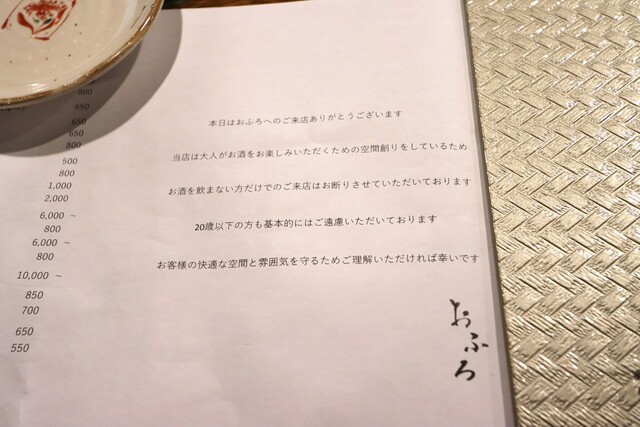 800
650
650
650
800
500
800
1,000
2,000
6,000 ~
800
6,000 ~
800
10,000 ~
850
700
650
550
本日はおふろへのご来店ありがとうございます
当店は大人がお酒をお楽しみいただくための空間創りをしているため
お酒を飲まない方だけでのご来店はお断りさせていただいております
20歳以下の方も基本的にはご遠慮いただいております
お客様の快適な空間と雰囲気を守るためご理解いただければ幸いです
おふろ